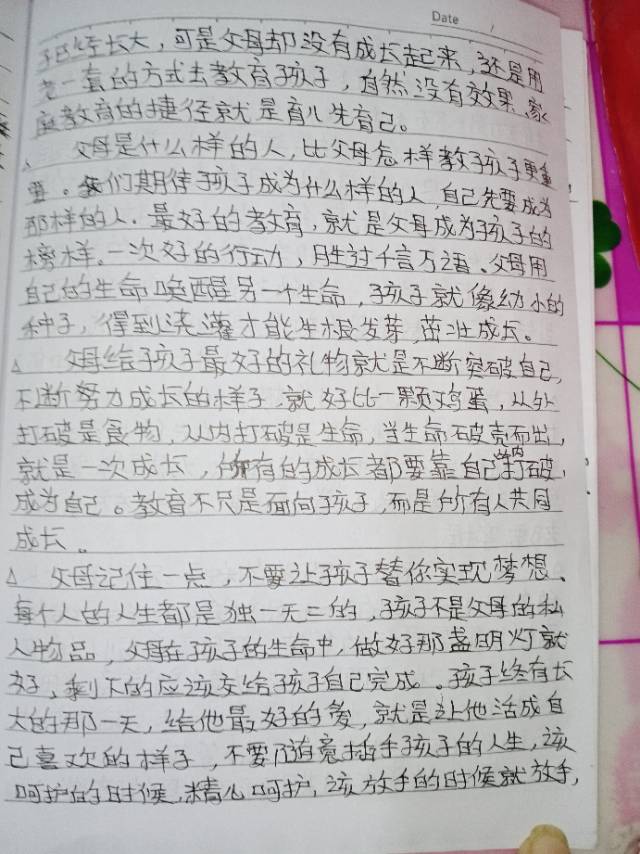 Date /
子已经长大，可是父母却没有成长起来，还是用
老一套的方式去教育孩子，自然没有效果，家
庭教育的捷径就是育儿先育己。
△ 父母是什么样的人，比父母怎样教孩子更重
要。我们期待孩子成为什么样的人，自己先要成为
那样的人．最好的教育，就是父母成为孩子的
榜样。一次好的行动，胜过千言万语、父母用
自己的生命唤醒另一个生命，孩子就像幼小的
种子，得到浇灌才能生根发芽，茁壮成长。
△ 父母给孩子最好的礼物就是不断突破自己，
不断努力成长的样子，就好比一颗鸡蛋，从外
打破是食物，从内打破是生命，当生命破壳而出，
就是一次成长，所有的成长都要靠自己从内打破，
成为自己。教育不只是面向孩子，而是所有人共同
成长。
△ 父母记住一点，不要让孩子替你实现梦想、
每个人的人生都是独一无二的，孩子不是父母的私
人物品，父母在孩子的生命中，做好那盏明灯就
好，剩下的应该交给孩子自己完成。孩子终有长
大的那一天，给他最好的爱，就是让他活成自
己喜欢的样子，不要随意插手孩子的人生，该
呵护的时候，精心呵护，该放手的时候就放手，